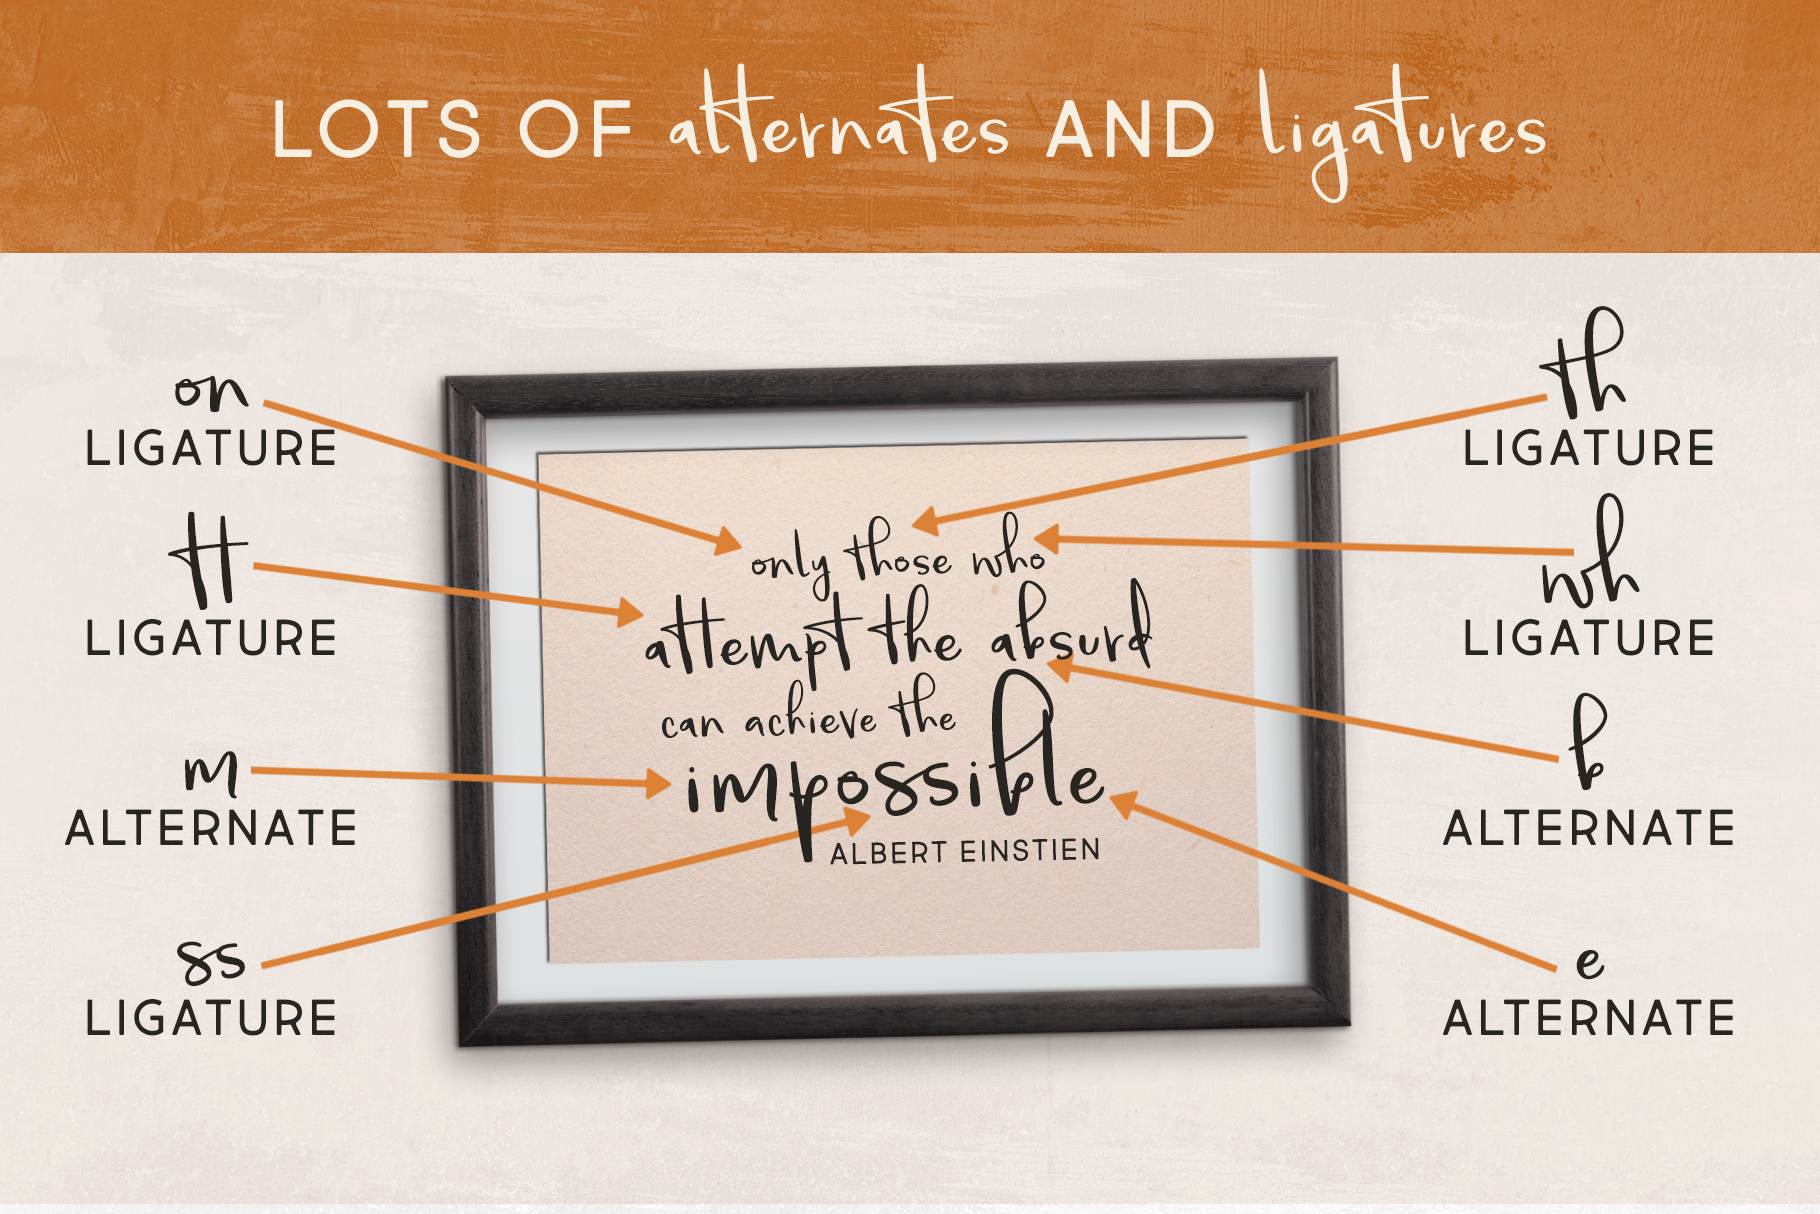 LOTS OF alternates AND ligatures
on
LIGATURE
tt
LIGATURE
m
ALTERNATE
ss
LIGATURE
only those who
attempt the absurd
can achieve the
impossible
ALBERT EINSTIEN
th
LIGATURE
wh
LIGATURE
b
ALTERNATE
e
ALTERNATE